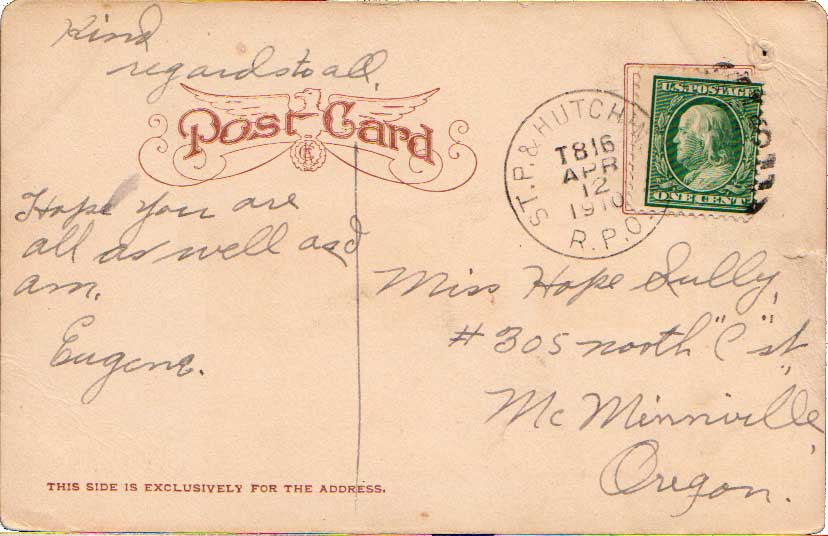 Kind
regards to all.
Post Card
U.S. POSTAGE
ONE CENT
ST. P. & HUTCHIN
T816
APR
12
1910
R.P.O.
Hope you are
all as well as I
am.
Eugene.
Miss Hope Sully,
#305 north "C" st
McMinnville
Oregon.
THIS SIDE IS EXCLUSIVELY FOR THE ADDRESS.